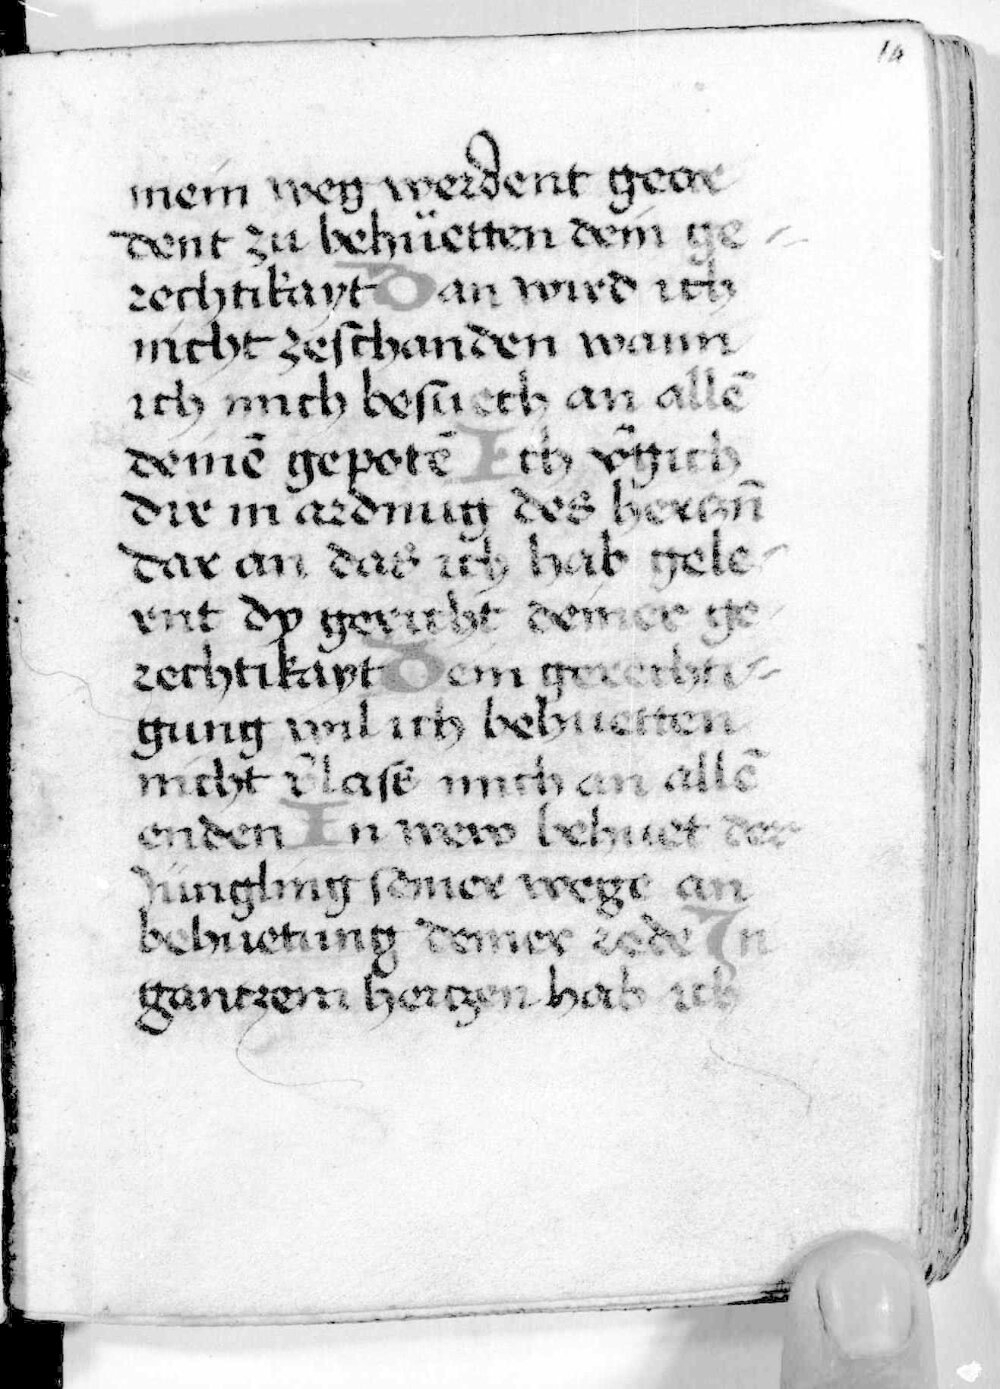 14
mein weg werdent geor
dent zu behüetten dein ge-
rechtikayt Dan wird ich
nicht zeschanden wann
ich mich besuech an allē
deinē gepotē Ich v̄gich
dir in ardnug des hertzn̄
dar an das ich hab gele-
rnt dy gericht deiner ge-
rechtikayt Dein gerechti-
gung wil ich behuetten
nicht v̄lase mich an allē
enden In wew behuet der
Jüngling seiner wege an
behuetung deiner rede In
gantzem hertzen hab ich